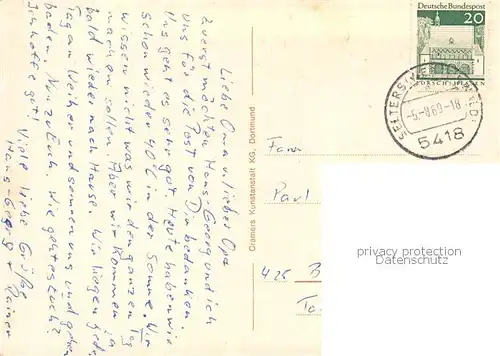 Liebe Oma u. lieber Opa
Zuerst möchten Hans-Georg und ich
uns für die Post von Dir bedanken.
Uns geht es sehr gut. Heute haben wir
schon wieder 40° C in der Sonne. Wir
wissen nicht was wir den ganzen Tag
machen sollen. Aber wir kommen ja
bald wieder nach Hause. Wir liegen jeden
Tag am Weiher und sonnen uns und gehen
baden. Nun zu Euch. Wie geht es Euch?
Ich hoffe gut!
Viele liebe Grüße
Hans-Georg + Rainer
Cramers Kunstanstalt KG, Dortmund
Deutsche Bundespost
20
LORSCH/HESSEN
SELTERS
-5.-8.69-18
5418
Fam
Paul
privacy protection
Datenschutz